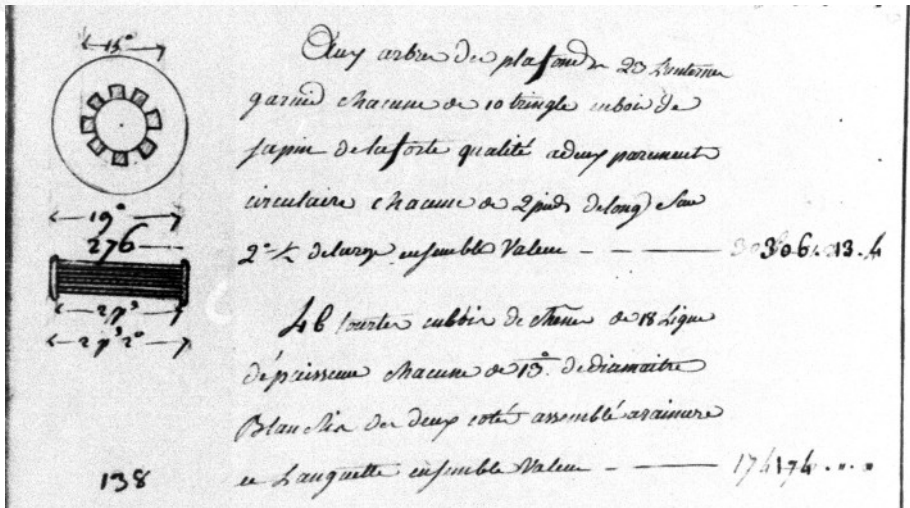 15°
19°
276
2 pds
2 pds 2°
138
Aux arbres de plafonds 23 Lanterne
garnid chacune de 10 tringle en bois de
sapin de la forte qualité a deux parement
circulaire chacune de 2 pieds de long Sur
2° ½ de large ensemble Valeur - - — 306.13.4
46 tourtes en bois de chene de 18 Ligne
d'épaisseur chacune de 13° de diamaitre
Blanchie des deux coté assemblé a rainure
et Languette ensemble Valeur - — 174 174 . " . "